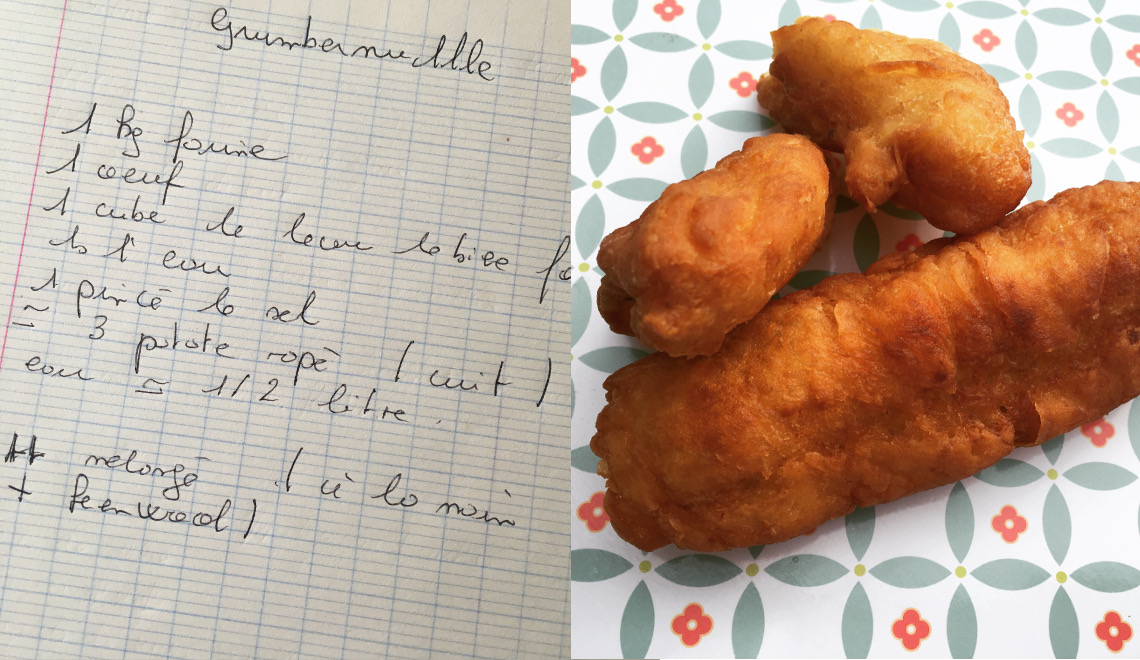 Grumbernudlle
1 kg farine
1 oeuf
1 cube de levure de biere
ds l' eau
1 pincé de sel
≃ 3 patate rapé ( cuit )
eau ≃ 1/2 litre.
melangé ( à la main
+ kenwood )